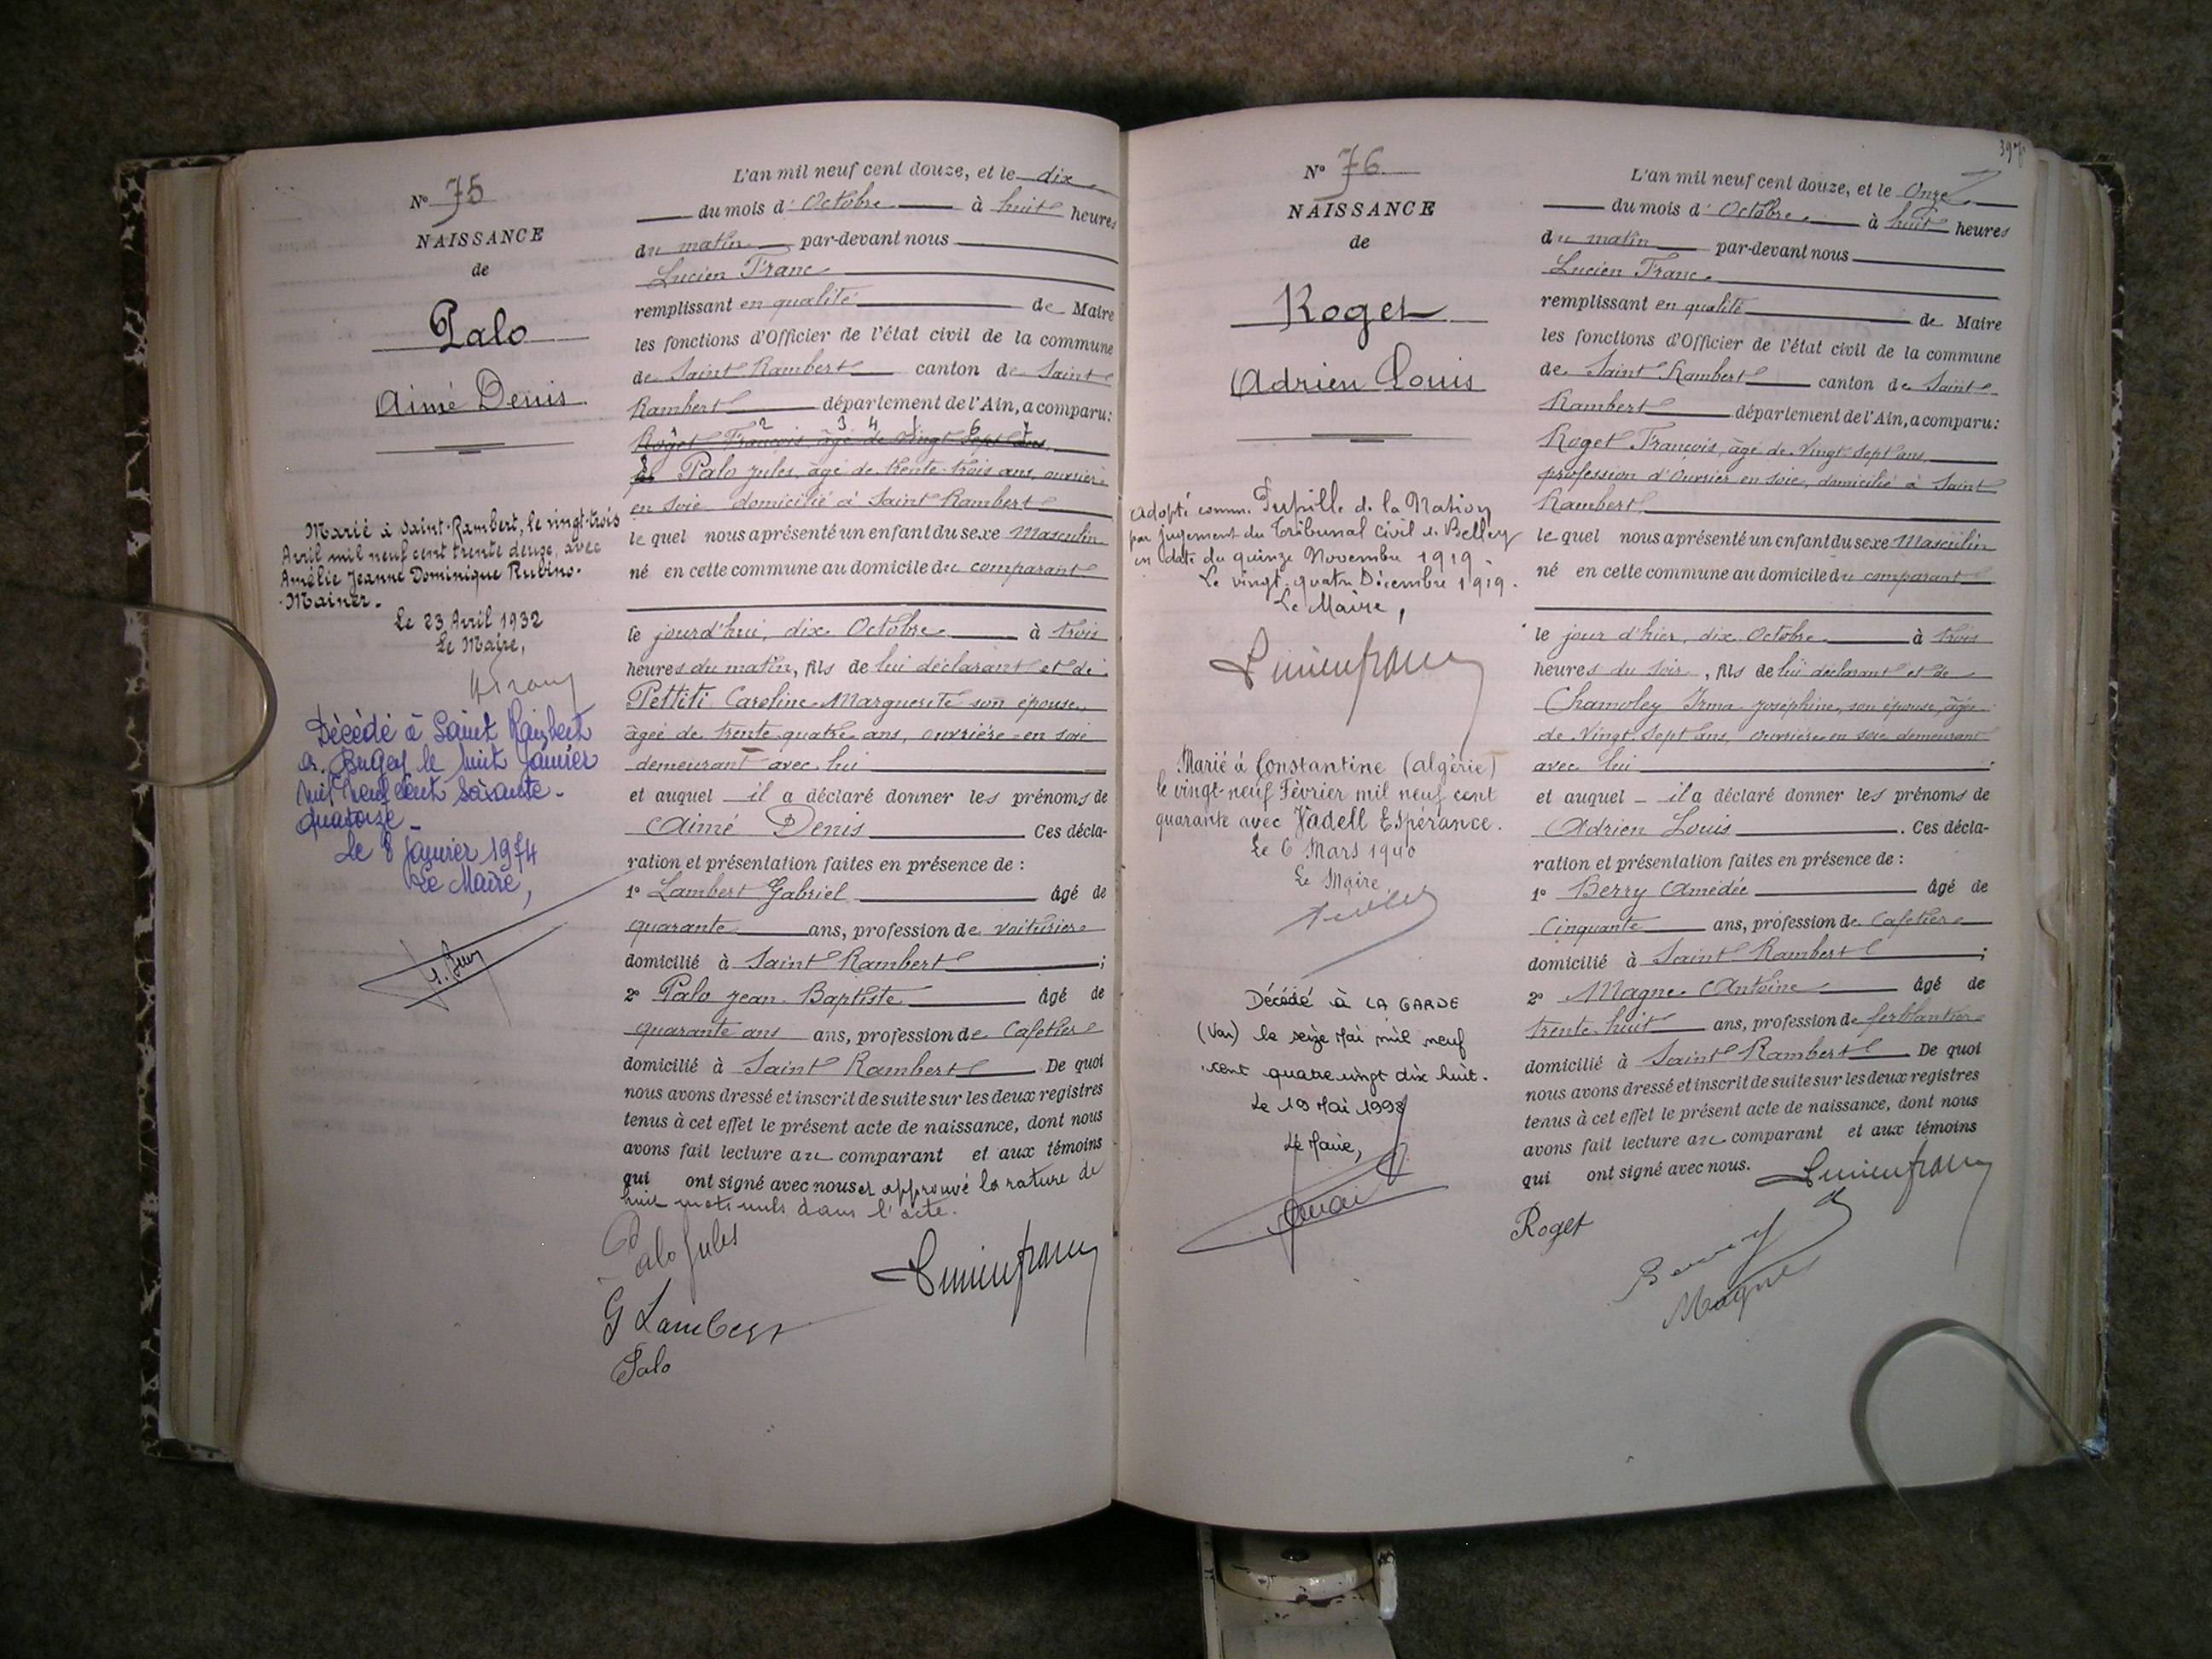 N° 75
NAISSANCE
de
Palo
Aimé Denis
Marié à Saint-Rambert, le vingt-trois
Avril mil neuf cent trente deux, avec
Amélie Jeanne Dominique Rubino-
Mainer.
Le 23 Avril 1932
Le Maire,
Décédé à Saint Rambert
en Bugey le huit Janvier
mil neuf cent soixante-
quatorze
Le 8 Janvier 1974
Le Maire,
L'an mil neuf cent douze, et le dix
du mois d'Octobre à huit heures
du matin par-devant nous
Lucien Franc
remplissant en qualité de Maire
les fonctions d'Officier de l'état civil de la commune
de Saint Rambert canton de Saint
Rambert département de l'Ain, a comparu:
2 3 4 6
Roget François, âgé de vingt sept ans,
Palo Jules, âgé de trente-trois ans, ouvrier
en soie domicilié à Saint Rambert
lequel nous a présenté un enfant du sexe Masculin
né en cette commune au domicile du comparant
le jourd'hui, dix Octobre à trois
heures du matin, fils de lui déclarant et de
Pettiti Caroline Marguerite son épouse
âgée de trente-quatre ans, ouvrière en soie
demeurant avec lui
et auquel il a déclaré donner les prénoms de
Aimé Denis Ces décla-
ration et présentation faites en présence de :
1° Lambert Gabriel âgé de
quarante ans, profession de voiturier
domicilié à Saint Rambert ;
2° Palo Jean Baptiste âgé de
quarante ans ans, profession de Cafetier
domicilié à Saint Rambert De quoi
nous avons dressé et inscrit de suite sur les deux registres
tenus à cet effet le présent acte de naissance, dont nous
avons fait lecture au comparant et aux témoins
qui ont signé avec nous et approuvé la rature de
huit mots nuls dans l'acte.
Palo Jules
Lucien franc
G Lambert
Palo
397
N° 76
NAISSANCE
de
Roget
Adrien Louis
Adopté comme Pupille de la Nation
par jugement du Tribunal Civil de Belley
en date du quinze Novembre 1919.
Le vingt-quatre Décembre 1919.
Le Maire,
Lucien franc
Marié à Constantine (Algérie)
le vingt-neuf Février mil neuf cent
quarante avec Vadell Espérance.
Le 6 Mars 1940
Le Maire
Décédé à LA GARDE
(Var) le seize Mai mil neuf
cent quatre vingt dix huit.
Le 19 Mai 1998
Le Maire,
L'an mil neuf cent douze, et le Onze
du mois d'Octobre à huit heures
du matin par-devant nous
Lucien Franc
remplissant en qualité de Maire
les fonctions d'Officier de l'état civil de la commune
de Saint Rambert canton de Saint
Rambert département de l'Ain, a comparu:
Roget François, âgé de vingt sept ans,
profession d'Ouvrier en soie, domicilié à Saint
Rambert
lequel nous a présenté un enfant du sexe Masculin
né en cette commune au domicile du comparant
le jour d'hier, dix Octobre à trois
heures du soir, fils de lui déclarant et de
Chamoley Irma Joséphine, son épouse, âgée
de Vingt Sept ans, Ouvrière en soie demeurant
avec lui
et auquel il a déclaré donner les prénoms de
Adrien Louis . Ces décla-
ration et présentation faites en présence de :
1° Berry Amédée âgé de
Cinquante ans, profession de Cafetier
domicilié à Saint Rambert ;
2° Magne Antoine âgé de
trente huit ans, profession de ferblantier
domicilié à Saint Rambert De quoi
nous avons dressé et inscrit de suite sur les deux registres
tenus à cet effet le présent acte de naissance, dont nous
avons fait lecture au comparant et aux témoins
qui ont signé avec nous. Lucien franc
Roget
Berry
Magne